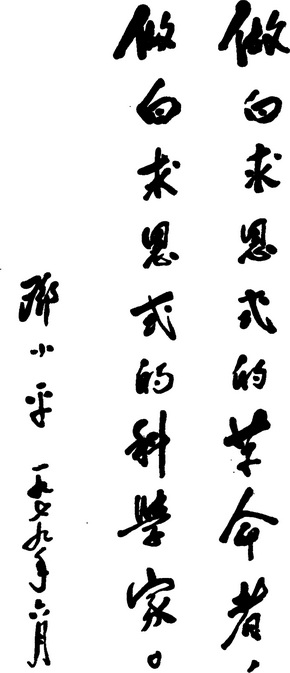 做白求恩式的革命者，
做白求恩式的科學家。
鄧小平 一九七九年六月